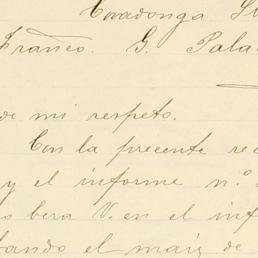 Covadonga
Franco. G. Pala
de mi respeto.
Con la precente re
y el informe n.º
o bera V. en el inf
tando el maiz de